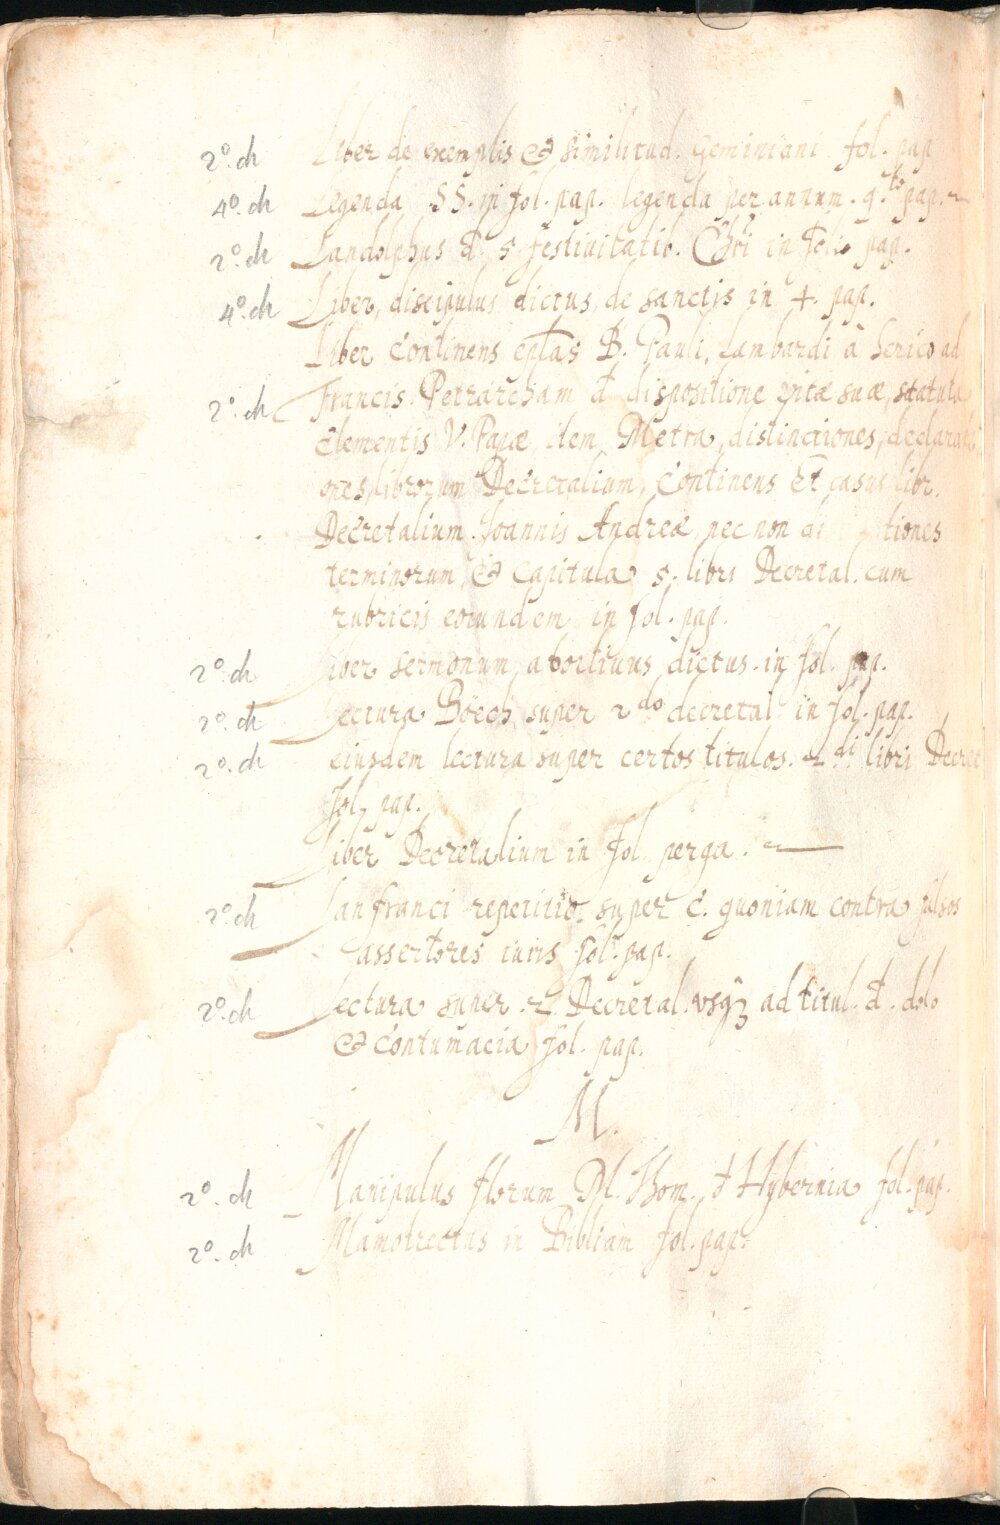 2º. ch Liber de exemplis & similitud. Geminiani fol. pap.
4º. ch Legenda SS. in fol. pap. legenda per annum. q.to pap.
2º. ch Landolphus d 5. festiuitatib. Chri in foli pap.
4º. ch Liber, discipulus dictus, de sanctis in 4. pap.
Liber continens eplas B. Pauli, Lambardi à Serico ad
2º. ch Francis. Petrarcham d dispositione vitæ suæ, statuta
Clementis V. Papæ, item Metra, distinctiones, declarati
ones librorum Decretalium, continens Et casus libr.
Decretalium. Joannis Andreæ, nec non tiones
terminorum & Capitula 5. libri Decretal. cum
rubricis eorundem in fol. pap.
2º. ch Liber sermonum, abortiuus dictus. in fol. pap.
2º. ch Lectura super 2do decretal. in fol. pap.
2º. ch eiusdem lectura super certos titulos. 2di libri Decret
fol. pap.
Liber Decretalium in fol. perga.
2º. ch Lanfranci repetitio super c. quoniam contra falsos
assertores iuris fol. pap.
2º. ch Lectura super. 2. Decretal. vsq3 ad titul. d. dolo
& contumacia fol. pap.
M.
2º. ch Manipulus florum M. Thom. d Hybernia fol. pap.
2º. ch Mamotrectus in Bibliam fol. pap.